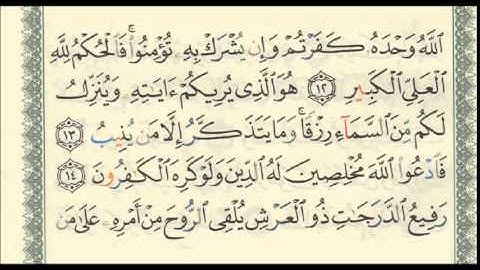 ٱللَّهُ وَحْدَهُۥ كَفَرْتُمْ وَإِن يُشْرَكْ بِهِۦ تُؤْمِنُوا۟ ۚ فَٱلْحُكْمُ لِلَّهِ
ٱلْعَلِىِّ ٱلْكَبِيرِ ۝١٢ هُوَ ٱلَّذِى يُرِيكُمْ ءَايَٰتِهِۦ وَيُنَزِّلُ
لَكُم مِّنَ ٱلسَّمَآءِ رِزْقًا ۚ وَمَا يَتَذَكَّرُ إِلَّا مَن يُنِيبُ ۝١٣
فَٱدْعُوا۟ ٱللَّهَ مُخْلِصِينَ لَهُ ٱلدِّينَ وَلَوْ كَرِهَ ٱلْكَٰفِرُونَ ۝١٤
رَفِيعُ ٱلدَّرَجَٰتِ ذُو ٱلْعَرْشِ يُلْقِى ٱلرُّوحَ مِنْ أَمْرِهِۦ عَلَىٰ مَن